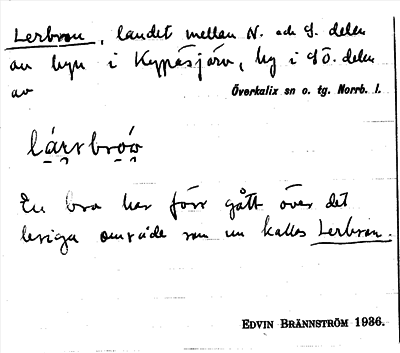 Lerbron, landet mellan N. och S. delen
av byn i Kypäsjärv, by i SÖ. delen
av Överkalix sn o. tg. Norrb. l.
lársbróọ
En bro har förr gått över det
leriga område som nu kallas Lerbron.
EDVIN BRÄNNSTRÖM 1936.